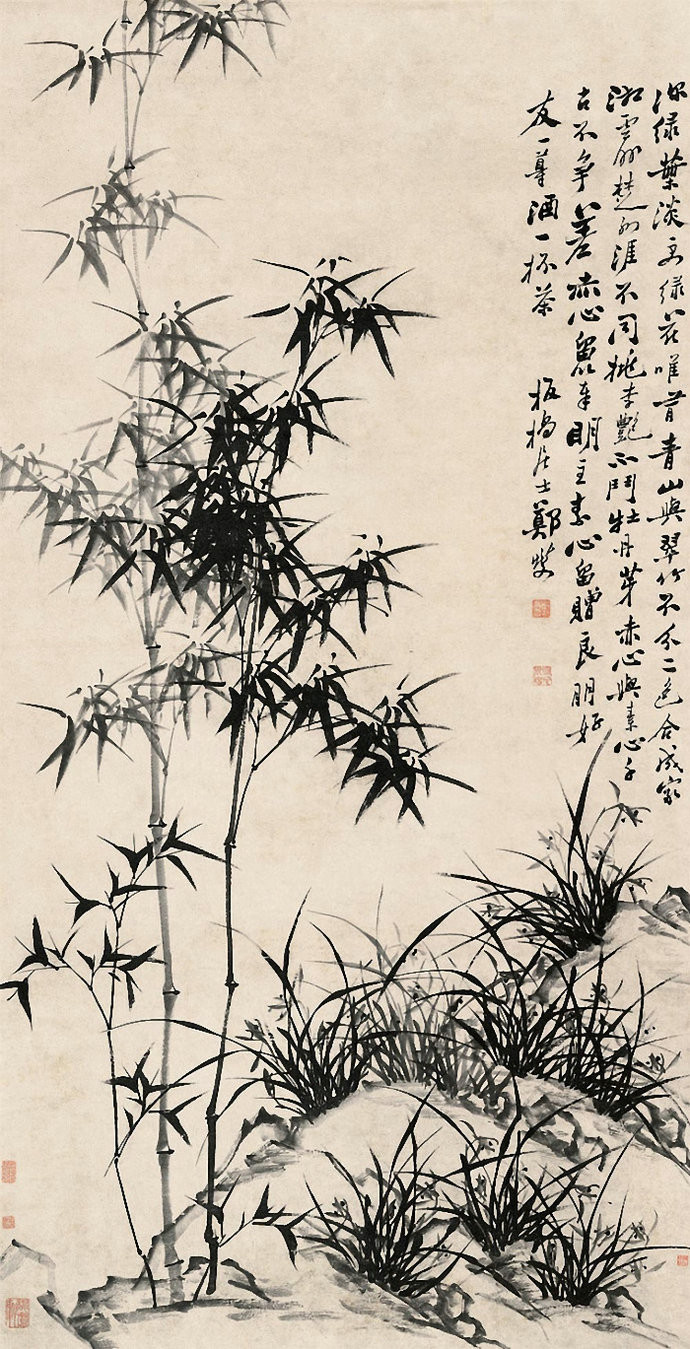 深绿葉淡绿花唯青山與翠竹不二色合成家
湘雲楚涯不同桃李艷不鬥牡丹芽赤心與素心千
古不爭差赤心留奉明主素心留贈良朋好
友一尊酒一杯茶
板橋居士鄭燮